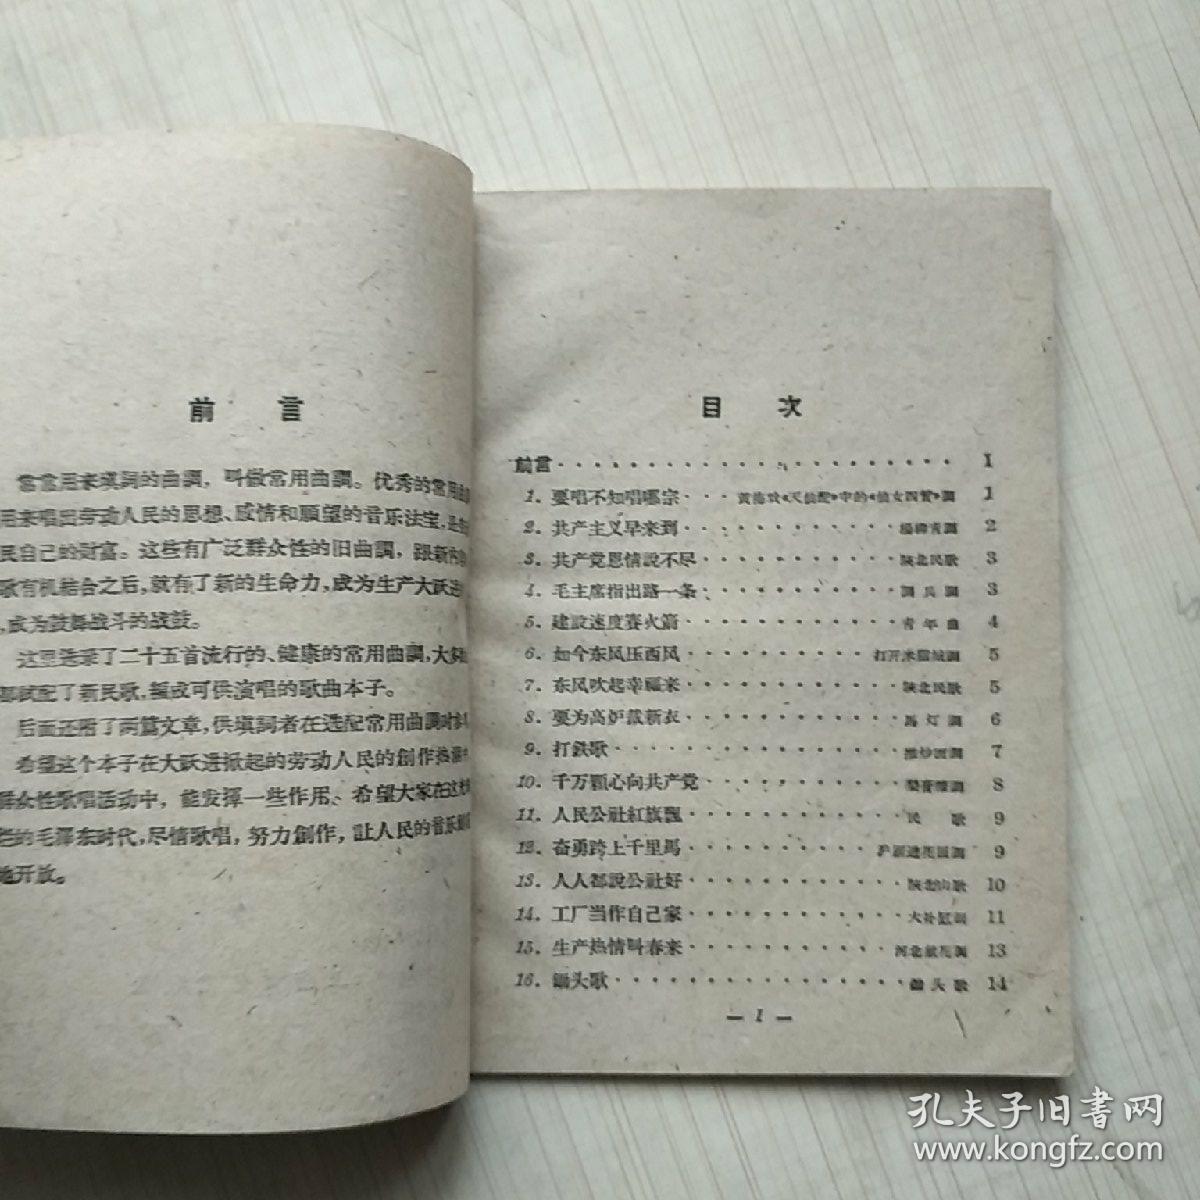 前 言
常常用来填詞的曲調，叫做常用曲調。优秀的常用曲
用来唱出劳动人民的思想、感情和願望的音乐法宝，是
民自己的財富。这些有广泛群众性的旧曲調，跟新内
歌有机結合之后，就有了新的生命力，成为生产大跃进
，成为鼓舞战斗的战鼓。
这里选录了二十五首流行的、健康的常用曲調，大
都試配了新民歌，編成可供演唱的歌曲本子。
后面还附了两篇文章，供填詞者在选配常用曲調时
希望这个本子在大跃进掀起的劳动人民的創作热潮
群众性歌唱活动中，能发揮一些作用。希望大家在这
的毛澤东时代，尽情歌唱，努力創作，让人民的音乐
地开放。
目 次
前言 1
1. 要唱不知唱哪宗 黄梅戏《天仙配》中的《仙女四贊》調 1
2. 共产主义早来到 楊柳青調 2
3. 共产党恩情說不尽 陝北民歌 3
4. 毛主席指出路一条 調兵調 3
5. 建設速度賽火箭 青年曲 4
6. 如今东风压西风 打开米脂城調 5
7. 东风吹起幸福来 陝北民歌 5
8. 要为高炉裁新衣 馬灯調 6
9. 打鉄歌 推炒面調 7
10. 千万顆心向共产党 梨膏糖調 8
11. 人民公社紅旗飄 民歌 9
12. 奋勇跨上千里馬 沪剧进花园調 9
13. 人人都說公社好 陝北山歌 10
14. 工厂当作自己家 大补缸調 11
15. 生产热情叫春来 河北献花調 13
16. 鋤头歌 鋤头歌 14
— 1 —
孔夫子旧書网
www.kongfz.com